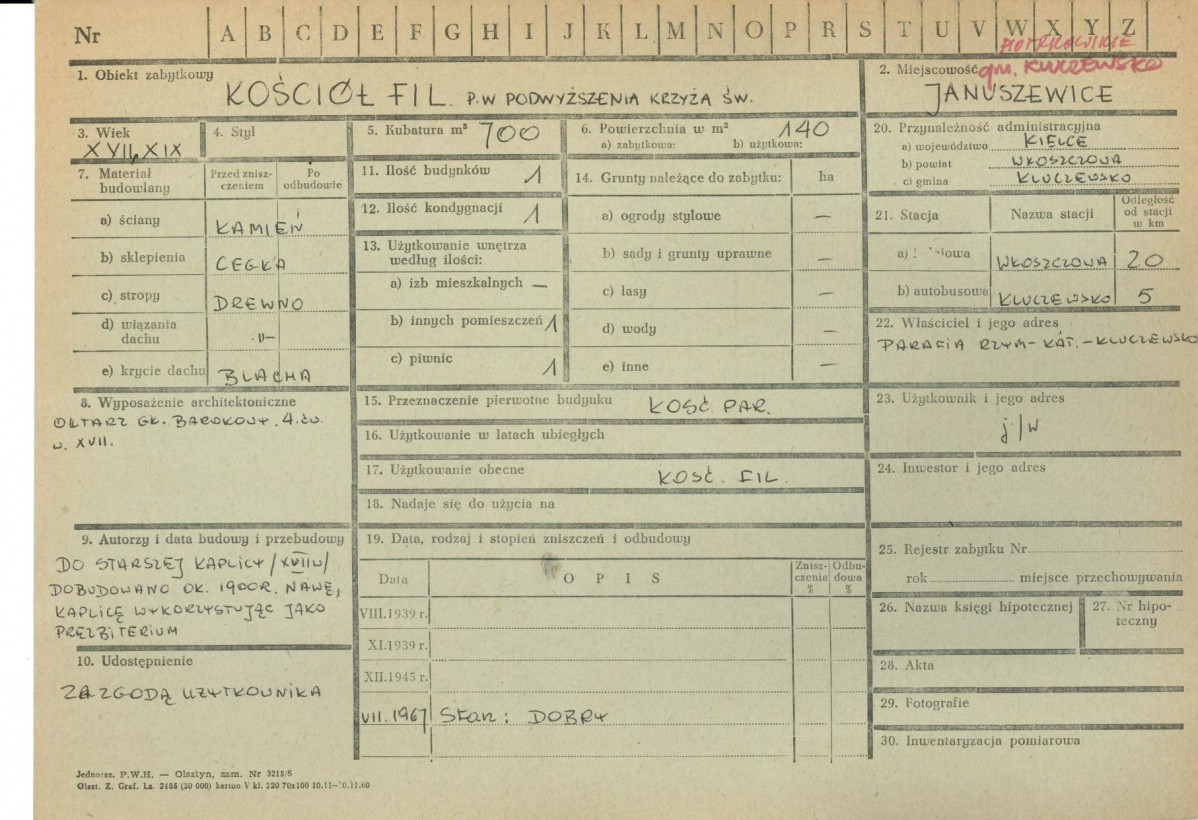 Nr A B C D E F G H I J K L M N O P R S T U V W X Y Z
PIOTRKOWSKIE
gm. KLUCZEWSKO
1. Obiekt zabytkowy
KOŚCIÓŁ FIL. P.W PODWYŻSZENIA KRZYŻA ŚW.
2. Miejscowość
JANUSZEWICE
3. Wiek
XVII, XIX
4. Styl
5. Kubatura m³ 700
6. Powierzchnia w m² 140
a) zabytkowa: b) użytkowa:
7. Materiał budowlany
Przed znisz-
czeniem
Po
odbudowie
a) ściany KAMIEŃ
b) sklepienia CEGŁA
c) stropy DREWNO
d) wiązania
dachu -„-
e) krycie dachu BLACHA
8. Wyposażenie architektoniczne
OŁTARZ GŁ. BAROKOWY. 4. ćw.
w. XVII.
9. Autorzy i data budowy i przebudowy
DO STARSZEJ KAPLICY /XVII w/
DOBUDOWANO OK. 1900R. NAWĘ,
KAPLICĘ WYKORZYSTUJĄC JAKO
PREZBITERIUM
10. Udostępnienie
ZA ZGODĄ UŻYTKOWNIKA
11. Ilość budynków 1
12. Ilość kondygnacji 1
13. Użytkowanie wnętrza
według ilości:
a) izb mieszkalnych —
b) innych pomieszczeń 1
c) piwnic 1
14. Grunty należące do zabytku: ha
a) ogrody stylowe —
b) sady i grunty uprawne —
c) lasy —
d) wody —
e) inne —
15. Przeznaczenie pierwotne budynku KOŚĆ. PAR.
16. Użytkowanie w latach ubiegłych
17. Użytkowanie obecne KOŚĆ. FIL.
18. Nadaje się do użycia na
19. Data, rodzaj i stopień zniszczeń i odbudowy
Data OPIS
Znisz-
czenia
%
Odbu-
dowa
%
VIII.1939 r.
XI.1939 r.
XII.1945 r.
VII.1967 Stan: DOBRY
20. Przynależność administracyjna
a) województwo KIELCE
b) powiat WŁOSZCZOWA
c) gmina KLUCZEWSKO
21. Stacja Nazwa stacji
Odległość
od stacji
w km
a) WŁOSZCZOWA 20
b) autobusowa KLUCZEWSKO 5
22. Właściciel i jego adres
PARAFIA RZYM-KAT.-KLUCZEWSKO
23. Użytkownik i jego adres
j/w
24. Inwestor i jego adres
25. Rejestr zabytku Nr
rok miejsce przechowywania
26. Nazwa księgi hipotecznej
27. Nr hipo-
teczny
28. Akta
29. Fotografie
30. Inwentaryzacja pomiarowa
Jednorez. P.W.H. — Olsztyn, zam. Nr 3215/S
Olszt. Z. Graf. Lz. 2485 (30 000) karton V kl. 220 70x100 10.11—10.11.60